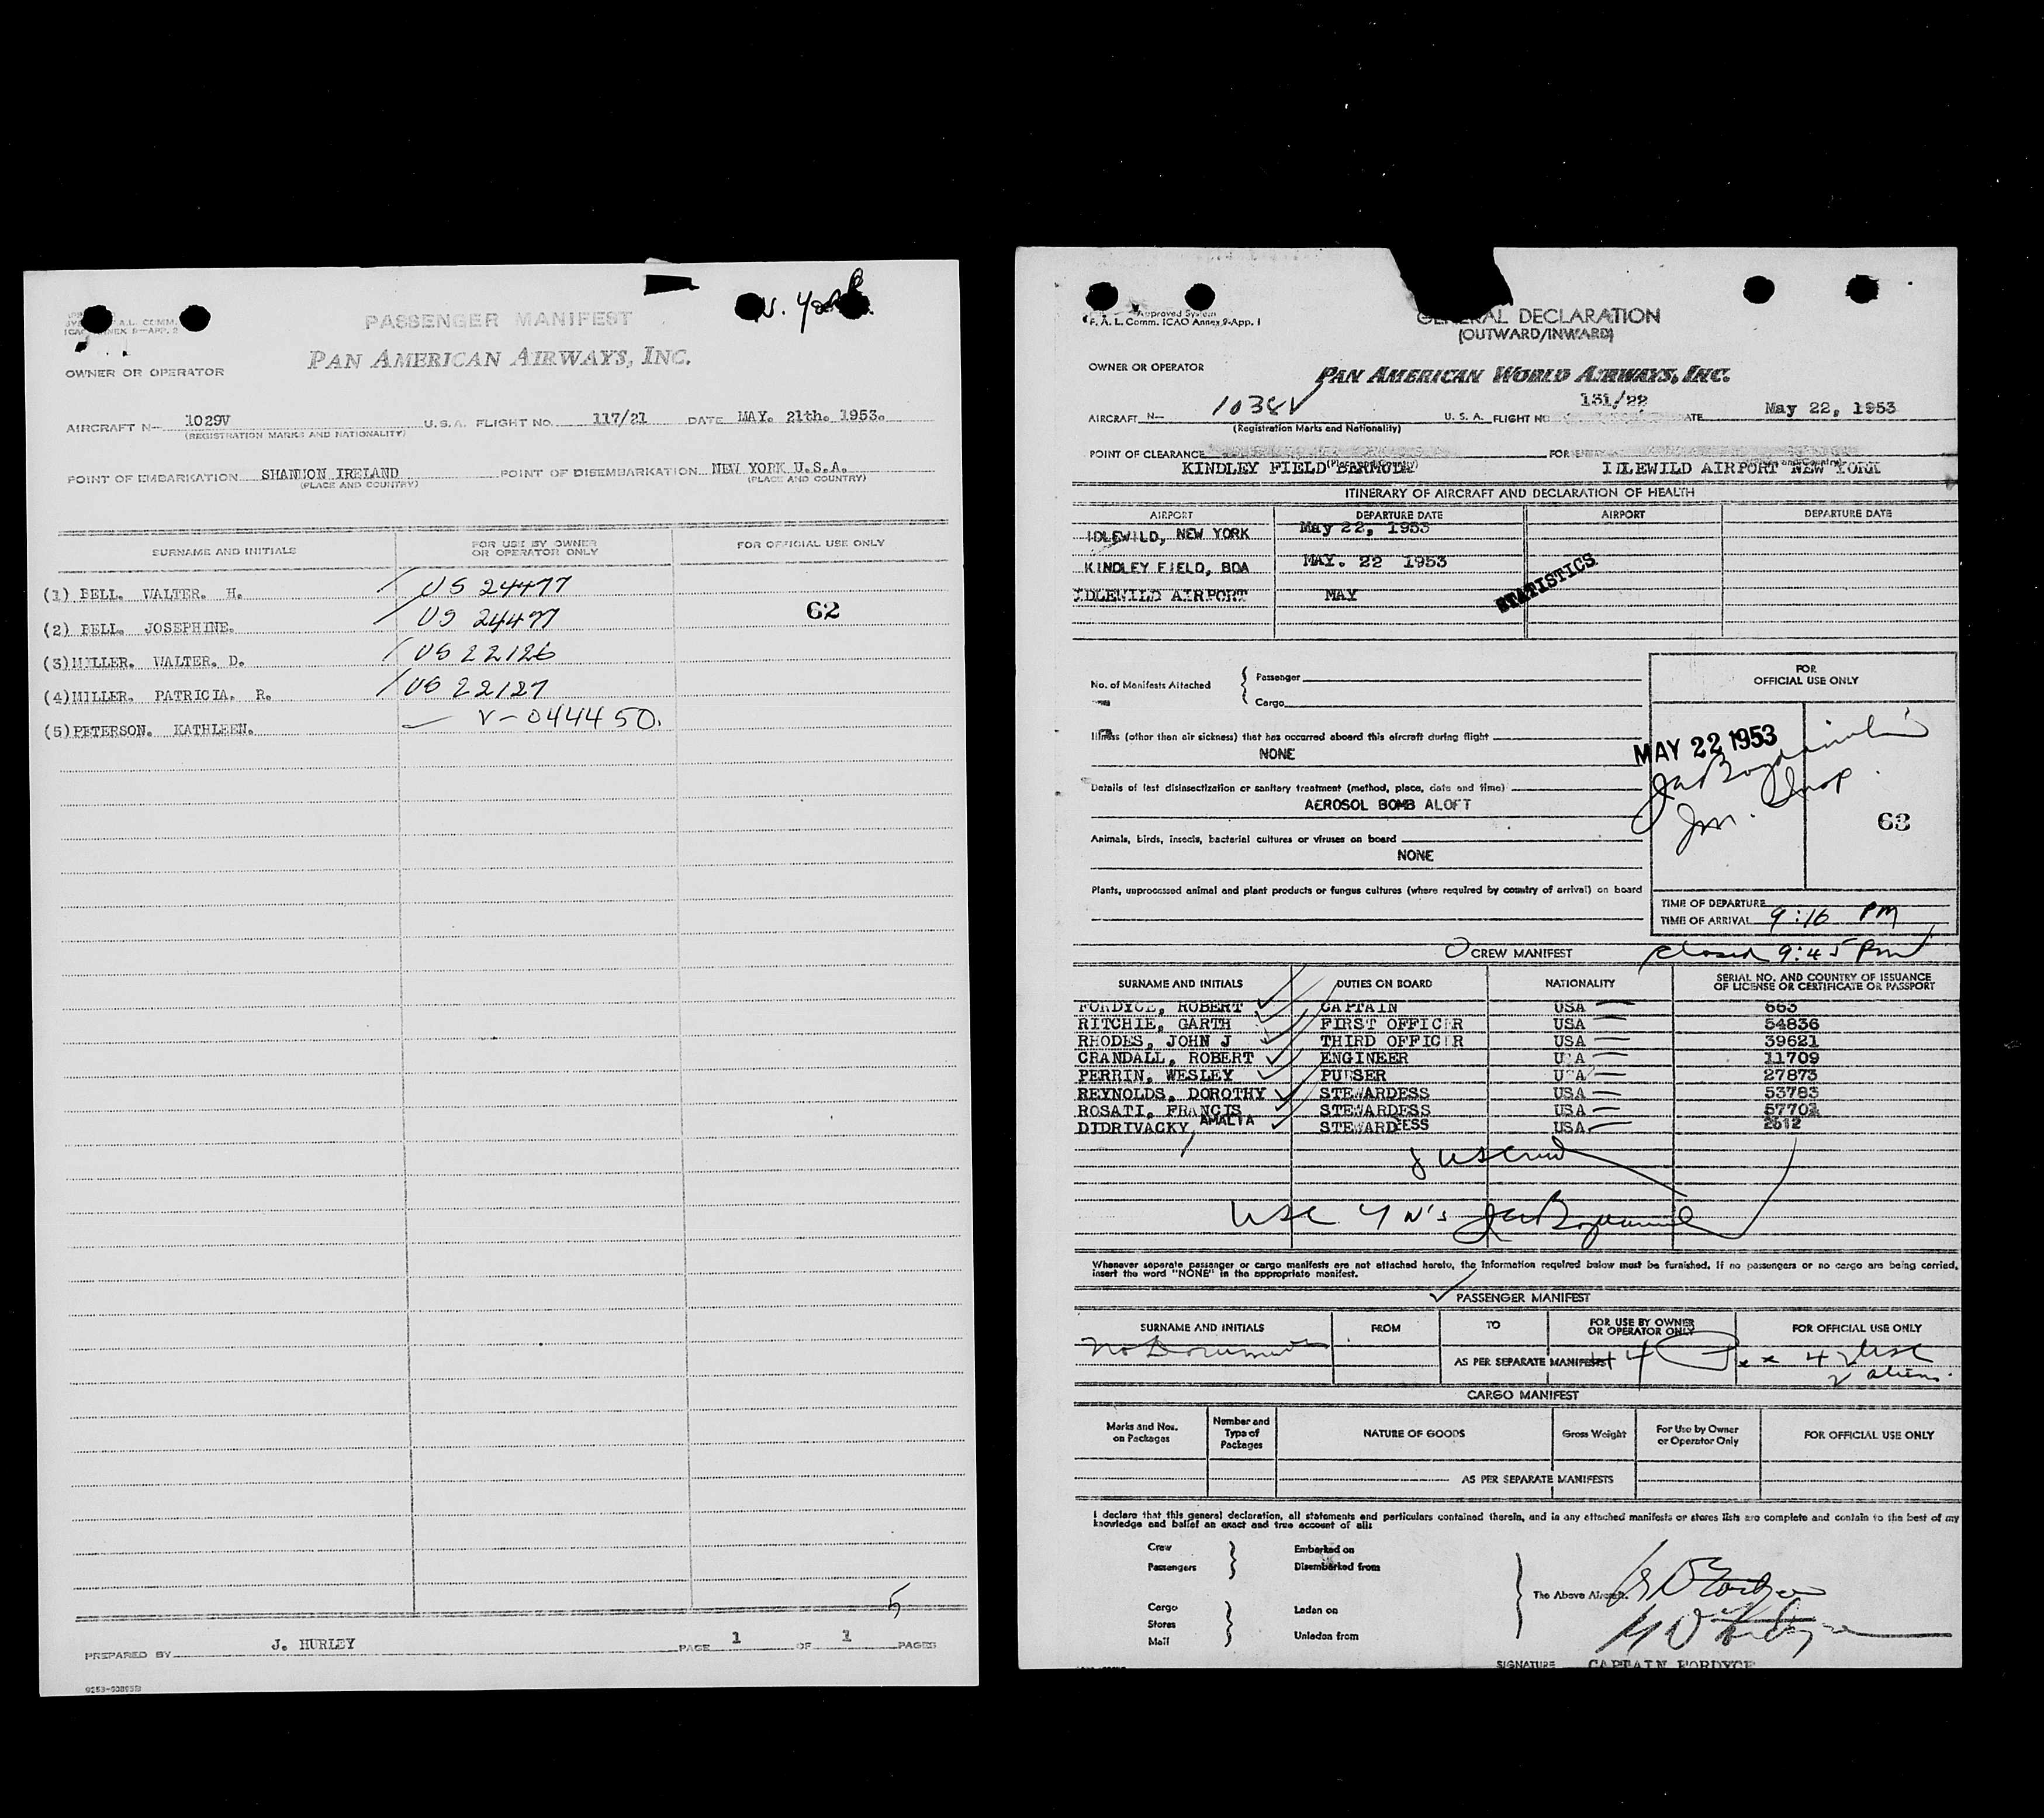 N. York
F.A.L. COMM.
ICAO ANNEX 9—APP. 2
PASSENGER MANIFEST
PAN AMERICAN AIRWAYS, INC.
OWNER OR OPERATOR
AIRCRAFT N— 1029V U.S.A. FLIGHT NO. 117/21 DATE MAY. 21th. 1953.
(REGISTRATION MARKS AND NATIONALITY)
POINT OF EMBARKATION SHANNON IRELAND POINT OF DISEMBARKATION NEW YORK U.S.A.
(PLACE AND COUNTRY) (PLACE AND COUNTRY)
SURNAME AND INITIALS FOR USE BY OWNER OR OPERATOR ONLY FOR OFFICIAL USE ONLY
(1) BELL. WALTER. H. US 24477
62
(2) BELL. JOSEPHINE. US 24477
(3) MILLER. WALTER. D. US 22126
(4) MILLER. PATRICIA. R. US 22127
(5) PETERSON. KATHLEEN. V-044450.
5
PREPARED BY J. HURLEY PAGE 1 OF 1 PAGES
Approved System
F. A. L. Comm. ICAO Annex 9-App. 1
GENERAL DECLARATION
(OUTWARD/INWARD)
OWNER OR OPERATOR
PAN AMERICAN WORLD AIRWAYS, INC.
AIRCRAFT N— 1038V U. S. A. FLIGHT NO 131/22 DATE May 22, 1953
(Registration Marks and Nationality)
POINT OF CLEARANCE KINDLEY FIELD BERMUDA FOR ENTRY IDLEWILD AIRPORT NEW YORK
ITINERARY OF AIRCRAFT AND DECLARATION OF HEALTH
AIRPORT DEPARTURE DATE AIRPORT DEPARTURE DATE
IDLEWILD, NEW YORK May 22, 1953
KINDLEY FIELD, BDA MAY. 22 1953
STATISTICS
IDLEWILD AIRPORT MAY
FOR OFFICIAL USE ONLY
No. of Manifests Attached { Passenger
Cargo
Illness (other than air sickness) that has occurred aboard this aircraft during flight
NONE
MAY 22 1953
Details of last disinsectization or sanitary treatment (method, place, date and time)
AEROSOL BOMB ALOFT
63
Animals, birds, insects, bacterial cultures or viruses on board
NONE
Plants, unprocessed animal and plant products or fungus cultures (where required by country of arrival) on board
TIME OF DEPARTURE
TIME OF ARRIVAL 9:16 PM
closed 9:45 Pm
CREW MANIFEST
SURNAME AND INITIALS DUTIES ON BOARD NATIONALITY SERIAL NO. AND COUNTRY OF ISSUANCE OF LICENSE OR CERTIFICATE OR PASSPORT
FORDYCE, ROBERT CAPTAIN USA 663
RITCHIE, GARTH FIRST OFFICER USA 54836
RHODES, JOHN J THIRD OFFICER USA 39621
CRANDALL, ROBERT ENGINEER USA 11709
PERRIN, WESLEY PURSER USA 27873
REYNOLDS, DOROTHY STEWARDESS USA 53783
ROSATI, FRANCIS STEWARDESS USA 57701
DIDRIVACKY, AMALIA STEWARDESS USA 2612
Whenever separate passenger or cargo manifests are not attached hereto, the information required below must be furnished. If no passengers or no cargo are being carried,
insert the word "NONE" in the appropriate manifest.
PASSENGER MANIFEST
SURNAME AND INITIALS FROM TO FOR USE BY OWNER OR OPERATOR ONLY FOR OFFICIAL USE ONLY
AS PER SEPARATE MANIFESTS
2 aliens.
CARGO MANIFEST
Marks and Nos. on Packages Number and Type of Packages NATURE OF GOODS Gross Weight For Use by Owner or Operator Only FOR OFFICIAL USE ONLY
AS PER SEPARATE MANIFESTS
I declare that this general declaration, all statements and particulars contained therein, and in any attached manifests or stores lists are complete and contain to the best of my
knowledge and belief an exact and true account of all:
Crew Embarked on
Passengers Disembarked from
The Above Aircraft.
Cargo Laden on
Stores
Mail Unladen from
SIGNATURE CAPTAIN FORDYCE